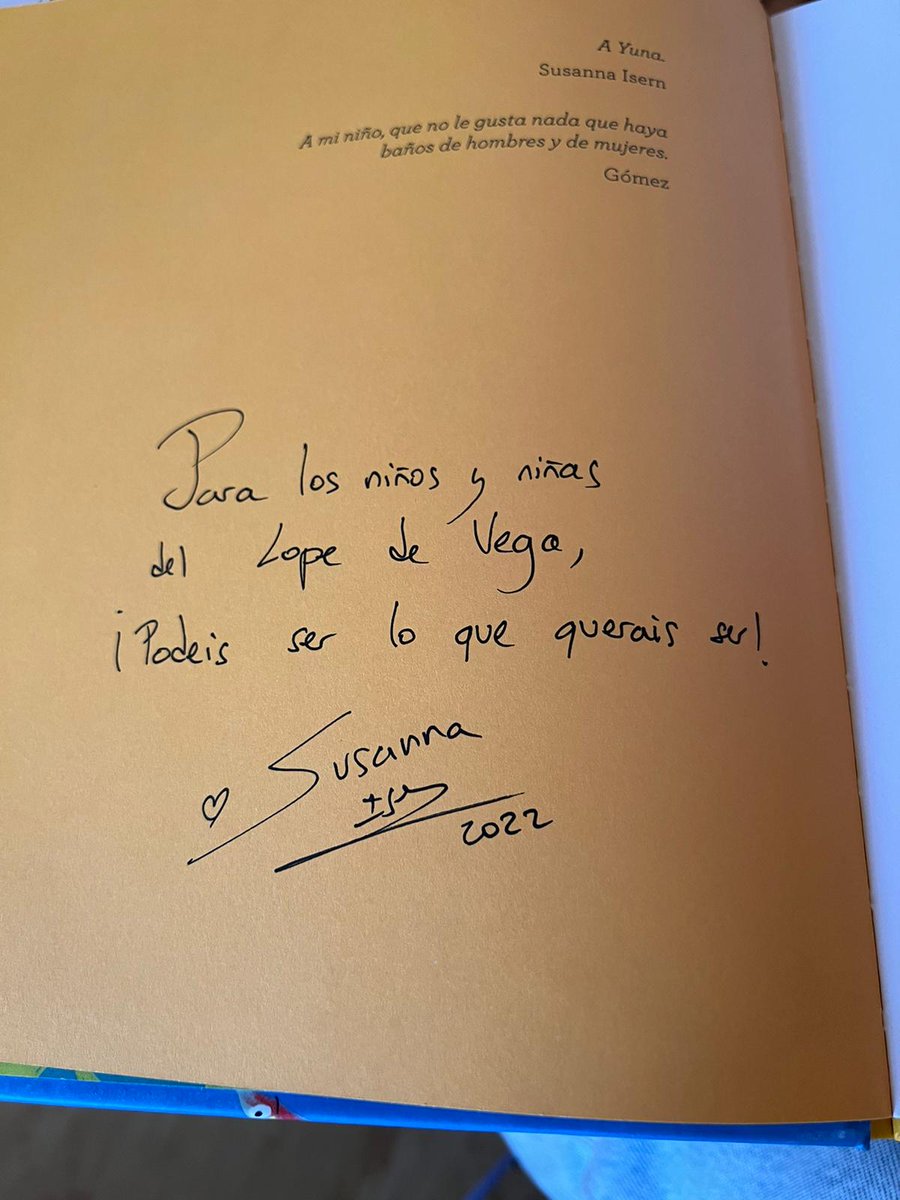 A Yuna.
Susanna Isern
A mi niño, que no le gusta nada que haya
baños de hombres y de mujeres.
Gómez
Para los niños y niñas
del Lope de Vega,
¡Podeis ser lo que querais ser!
Susanna
2022